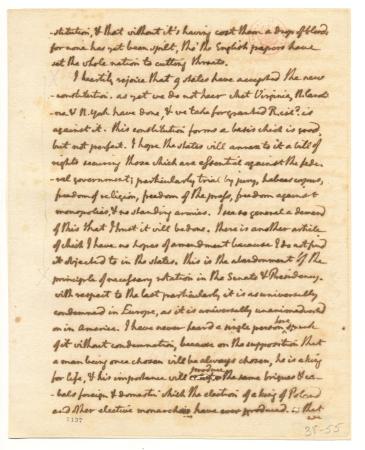 -stitution, & that without it's having cost them a drop of blood,
for none has yet been spilt, tho' the English papers have
set the whole nation to cutting throats.
I heartily rejoice that 9 states have accepted the new
constitution. as yet we do not hear what Virginia, N. Carol-
-ina & N. York have done, & we take for granted Rh. isld. is
against it. this constitution forms a basis which is good,
but not perfect. I hope the states will annex to it a bill of
rights securing those which are essential against the fede-
-ral government; particularly trial by jury, habeas corpus,
freedom of religion, freedom of the press, freedom against
monopolies, & no standing armies. I see so general a demand
of this that I trust it will be done. there is another article
of which I have no hopes of amendment because I do not find
it objected to in the states. this is the abandonment of the
principle of necessary rotation in the Senate & Presidency.
with respect to the last particularly, it is as universally
condemned in Europe, as it is universally unanimadverted
on in America. I have never heard a single person here speak
of it without condemnation, because on the supposition that
a man being once chosen will be always chosen, he is a king
for life, & his importance will produce the same brigues & ca-
-bals foreign & domestic which the election of a king of Poland
and other elective monarchies have ever produced. so that
we
7137
38-55